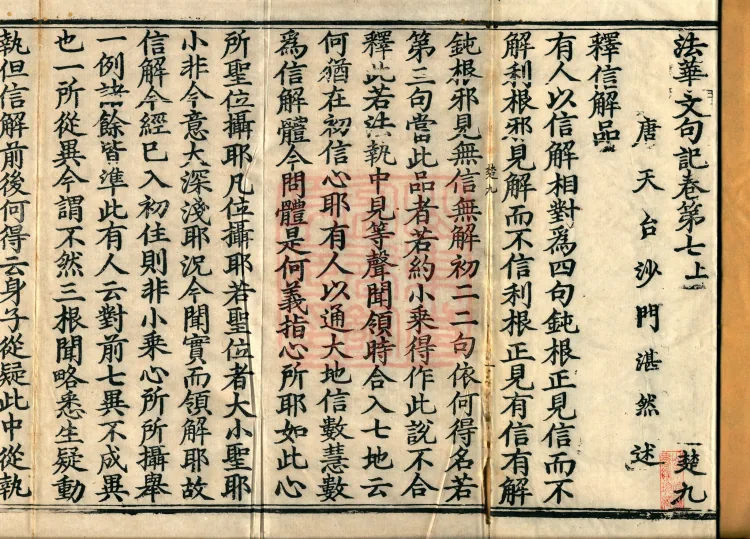 法華文句記卷第七上 楚九
唐天台沙門湛然述
釋信解品
有人以信解相對爲四句鈍根正見信而不
解利根邪見解而不信利根正見有信有解
楚九
鈍根邪見無信無解初二二句依何得名若
第三句當此品者若約小乗得作此說不合
釋此若法執中見等聲聞領時合入七地云
何猶在初信心耶有人以通大地信數慧數
爲信解體今問體是何義指心所耶如此心
所聖位攝耶凡位攝耶若聖位者大小聖耶
小非今意大深淺耶況今聞實而領解耶故
信解今經已入初住則非小乗心所所攝舉
一例諸餘皆準此有人云對前七異不成異
也一所從異今謂不然三根聞略悉生疑動
執但信解前後何得云身子從疑此中從執